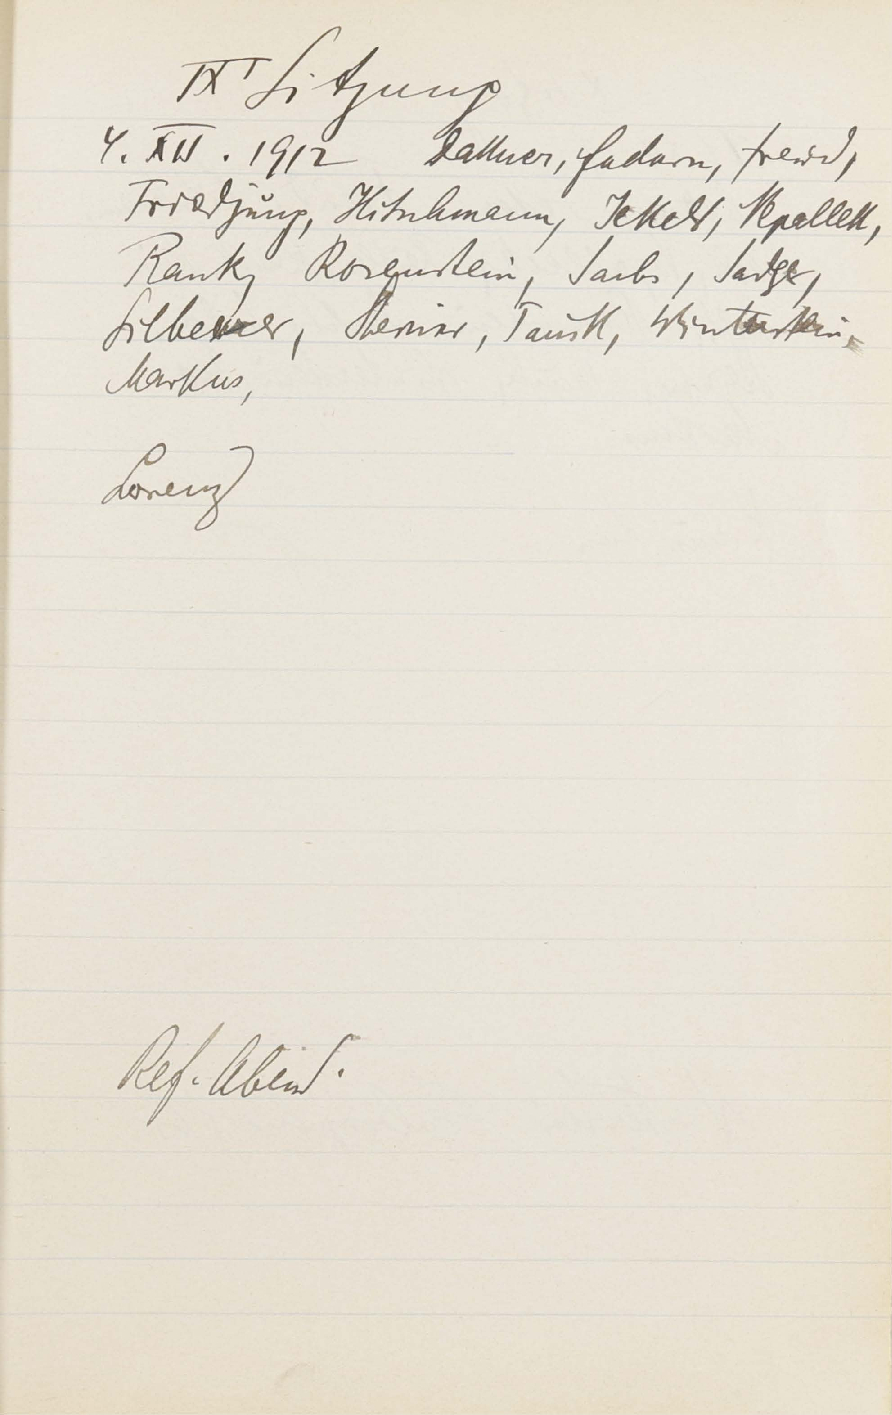 IX Sitzung
4. XII. 1912 Dattner, Federn, Freud,
Friedjung, Hitschmann, Jekels,
Rank, Rosenstein, Sachs, Sadger,
Silberer, Steiner, Tausk, Winterstein,
Markus,
Lorenz
Ref. Abend.